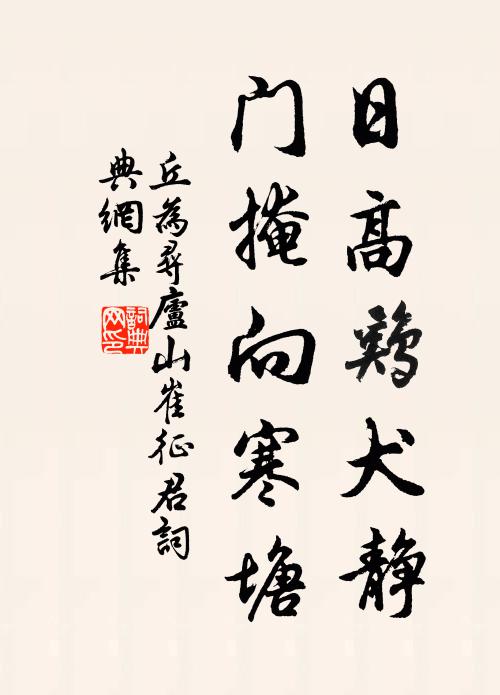 日高鷄犬静
门掩向寒塘
丘為尋廬山崔征君詞
典網集
詞典
网印